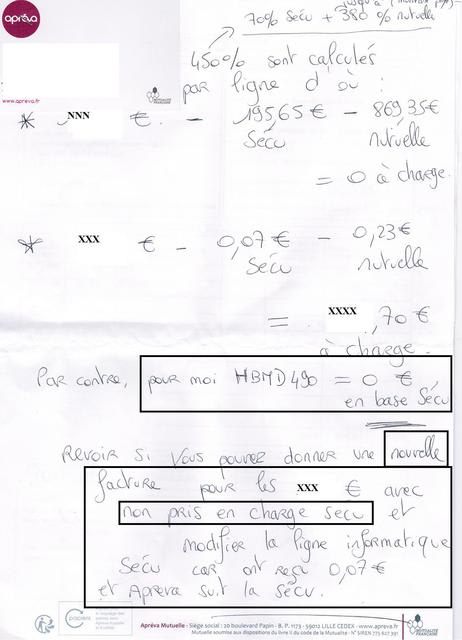 apréva
www.apreva.fr
MUTUALITÉ FRANÇAISE
70% Sécu + 380 % mutuelle
450% sont calculés
par ligne d'où :
* NNN € - 195,65 € - 869,35€
Sécu mutuelle
= 0 à charge.
* XXX € - 0,07 € - 0,23€
Sécu mutuelle
= XXXX ,70 €
à charge.
Par contre, pour moi HBMD490 = 0 €
en base Sécu
Revoir si vous pouvez donner une nouvelle
facture pour les XXX € avec
non pris en charge secu et
modifier la ligne informatique
Sécu car ont reçu 0,07€
et Apreva suit la sécu.
Apréva Mutuelle - Siège social : 20 boulevard Papin - B. P. 1173 - 59012 LILLE CEDEX - www.apreva.fr
Mutuelle soumise aux dispositions du livre II du code de la Mutualité - N° SIREN 775 627 391
MUTUALITÉ FRANÇAISE